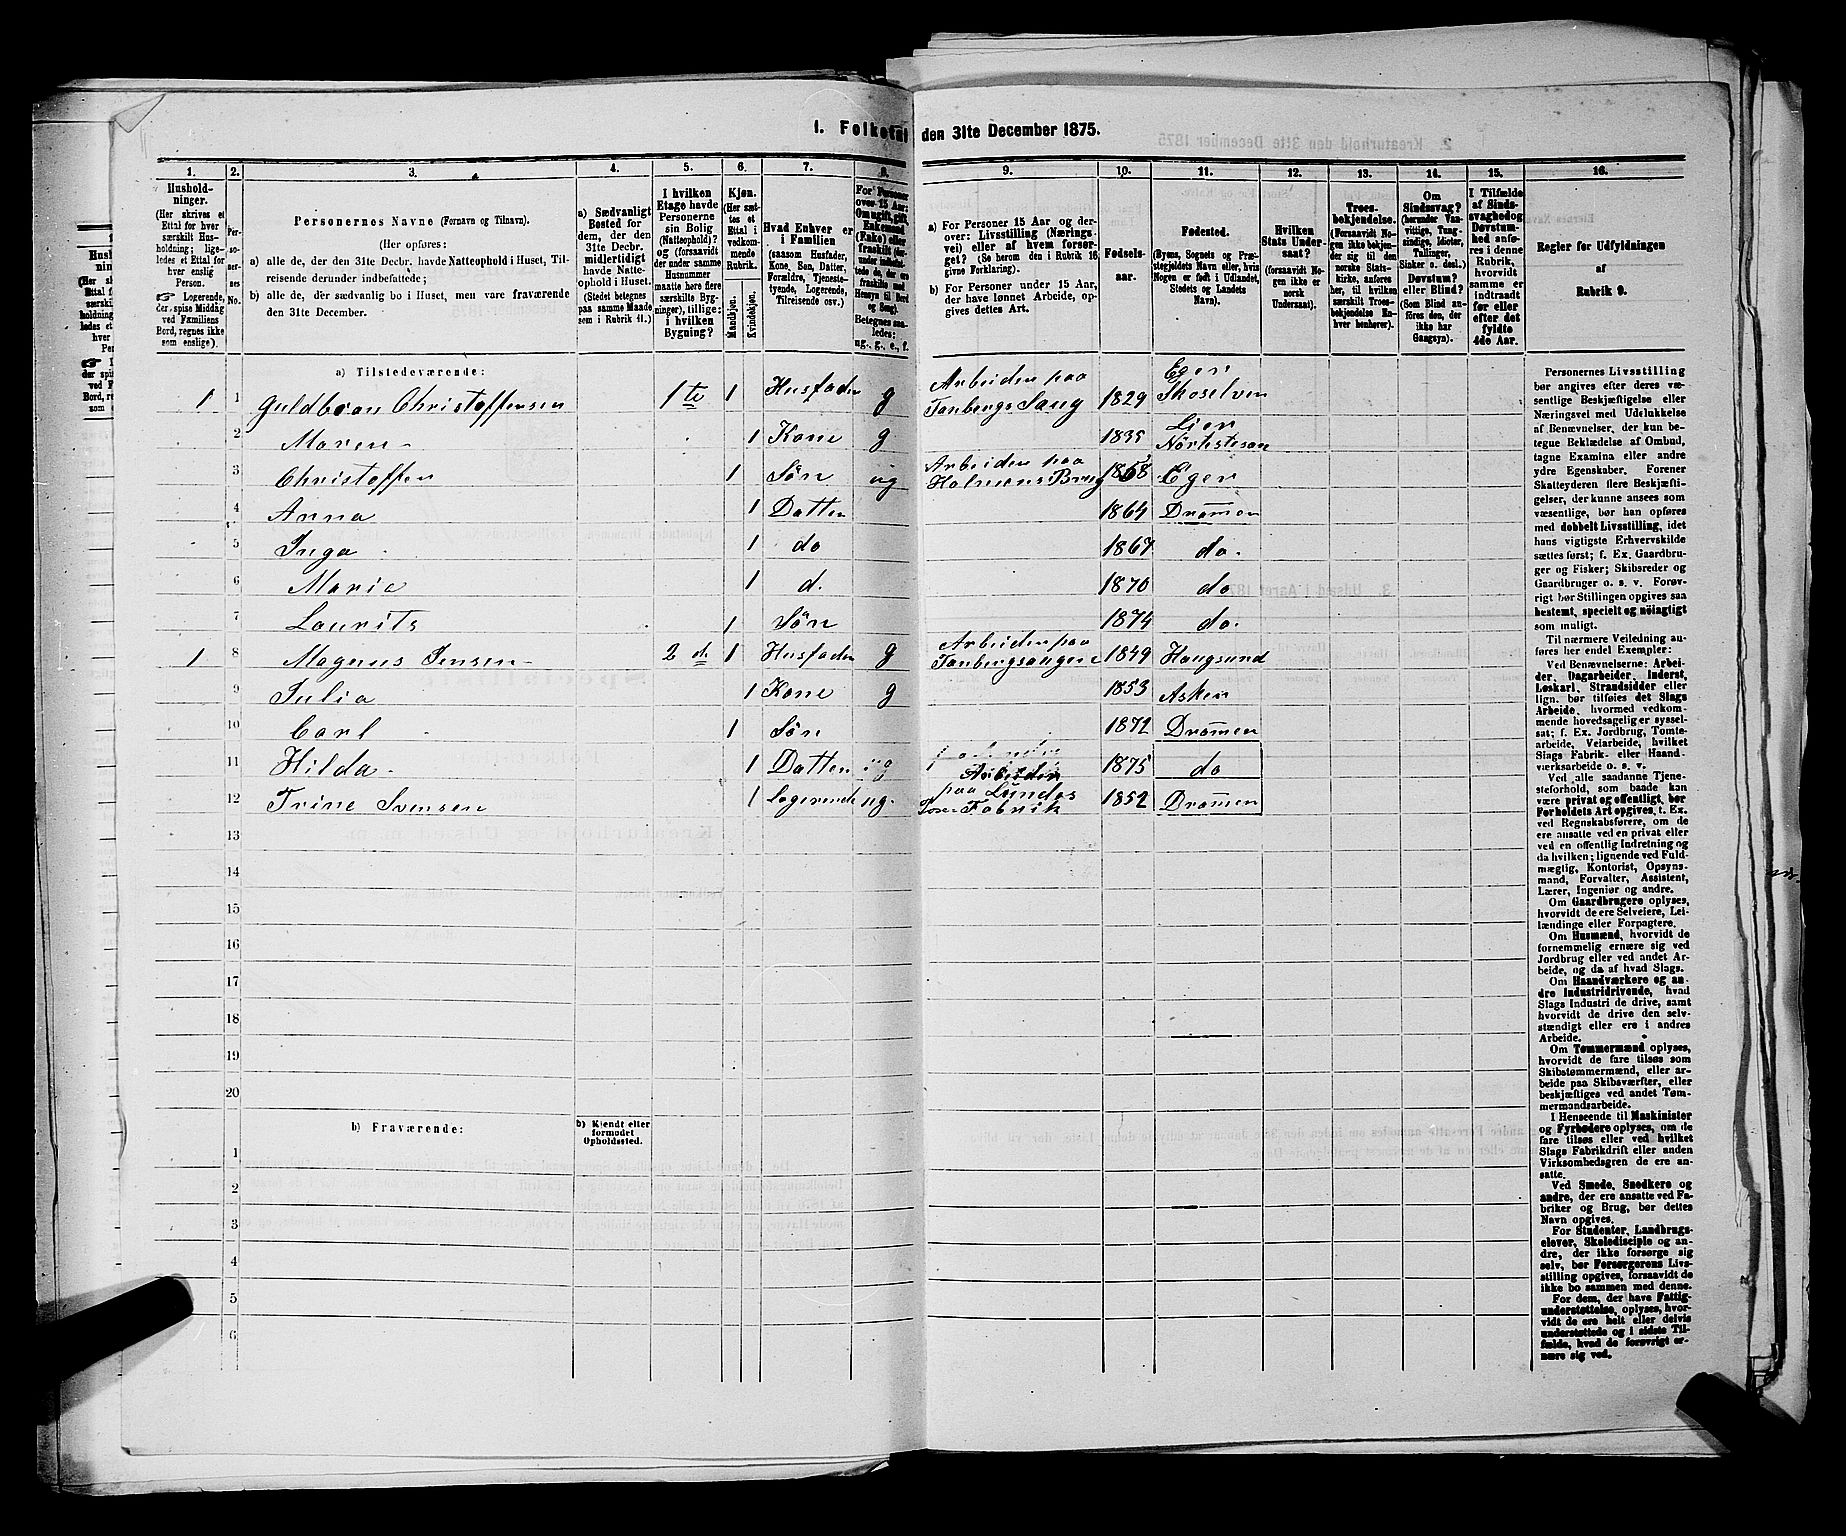 1. Folketal den 31te December 1875.
1. 2. 3. 4. 5. 6. 7. 8. 9. 10. 11. 12. 13. 14. 15. 16.
Husholdninger.
(Her skrives et Ettal for hver særskilt Husholdning; ligeledes et Ettal for hver enslig Person.
☞ Logerende, der spise Middag ved Familiens Bord, regnes ikke som enslige).
Personernes No.
Personernes Navne (Fornavn og Tilnavn).
(Her opføres:
a) alle de, der den 31te Decbr. havde Natteophold i Huset, Tilreisende derunder indbefattede;
b) alle de, der sædvanlig bo i Huset, men vare fraværende den 31te December.
a) Sædvanligt Bosted for dem, der den 31te Decbr. midlertidigt havde Natteophold i Huset. (Stedet betegnes paa samme Maade som i Rubrik 11.)
I hvilken Etage havde Personerne sin Bolig (Natteophold)? og (forsaavidt der under samme Husnummer maatte høre flere særskilte Bygninger), tillige: i hvilken Bygning?
Kjøn. (Her sættes et Ettal i vedkommende Rubrik.
Mandkjøn. Kvindekjøn.
Hvad Enhver er i Familien
(saasom Husfader, Kone, Søn, Datter, Forældre, Tjenestetyende, Logerende, Tilreisende osv.)
For Personer over 15 Aar: Om ugift, gift, Enkemand (Enke) eller fraskilt
Betegnes saaledes: ug., g., e., f.
a) For Personer 15 Aar og derover: Livsstilling (Næringsvei) eller af hvem forsørget? (Se herom den i Rubrik 16 givne Forklaring).
b) For Personer under 15 Aar, der have lønnet Arbeide, opgives dettes Art.
Fødselsaar.
Fødested.
(Byens, Sognets og Præstegjeldets Navn eller, hvis Nogen er født i Udlandet, Stedets og Landets Navn).
Hvilken Stats Undersaat?
(forsaavidt Nogen ikke er norsk Undersaat).
Troesbekjendelse.
(Forsaavidt Nogen ikke bekjender sig til den norske Statskirke, anføres her, til hvilken særskilt Troesbekjendelse Enhver henhører).
Om Sindssvag? (herunder Vanvittige, Tungsindige, Idioter, Tallinger, Sinker o. desl.) Døvstum? eller Blind? (Som Blind anføres den, der ikke har Gangsyn).
I Tilfælde af Sindssvaghed og Døvstumhed anføres i denne Rubrik, hvorvidt samme er indtraadt før eller efter det fyldte 4de Aar.
Regler for Udfyldningen af Rubrik 9.
a) Tilstedeværende:
1 1 Guldbran Christoffersen 1 te 1 Husfader g Arbeider paa Tanbergs Saug 1829 Eger Skoselven
2 Maren 1 Kone g 1835 Lier
3 Christoffer 1 Søn ug Arbeider paa Holmens Brug 1858 Eger
4 Anna 1 Datter 1864 Dramen
5 Inga 1 do 1867 do.
6 Maria 1 d. 1870 do
7 Laurits 1 Søn 1874 do.
1 8 Magnus Jensen 2 d. 1 Husfader g Arbeider paa 1849 Haugsund
9 Julia 1 Kone g 1853 Asker
10 Carl 1 Søn 1872 Dramen
11 Hilda 1 Datter ug 1875 do
12 Trine Svensen 1 logerende ug. Arbeider paa Lundes Fabrik 1852 Dramen
13
14
15
16
17
18
19
20
b) Fraværende:
b) Kjendt eller formodet Opholdssted.
1
2
3
4
5
6
Personernes Livsstilling bør angives efter deres væsentlige Beskjæftigelse eller Næringsvei med Udelukkelse af Benævnelser, der kun betegne Beklædelse af Ombud, tagne Examina eller andre ydre Egenskaber. Forener Skatteyderen flere Beskjæftigelser, der kunne ansees som væsentlige, bør han opføres med dobbelt Livsstilling, idet hans vigtigste Erhvervskilde sættes først; f. Ex. Gaardbruger og Fisker; Skibsreder og Gaardbruger o. s. v. Forøvrigt bør Stillingen opgives saa bestemt, specielt og nöiagtigt som muligt.
Til nærmere Veiledning anføres her endel Exempler:
Ved Benævnelserne: Arbeider, Dagarbeider, Inderst, Løskarl, Strandsidder eller lign. bør tilføies det Slags Arbeide, hvormed vedkommende hovedsagelig er sysselsat; f. Ex. Jordbrug, Tomtearbeide, Veiarbeide, hvilket Slags Fabrik- eller Haandværksarbeide o. s. v.
Ved alle saadanne Tjenesteforhold, som baade kan være privat og offentligt, bør Forholdets Art opgives, t. Ex. ved Regnskabsførere, om de ere ansatte ved en privat eller ved en offentlig Indretning og da hvilken; lignende ved Fuldmægtig, Kontorist, Opsynsmand, Forvalter, Assistent, Lærer, Ingeniør og andre.
Om Gaardbrugere oplyses, hvorvidt de ere Selveiere, Leilændinge eller Forpagtere.
Om Husmænd, hvorvidt de fornemmelig ernære sig ved Jordbrug eller ved andet Arbeide, og da af hvad Slags.
Om Haandværkere og andre Industridrivende, hvad Slags Industri de drive, samt hvorvidt de drive den selvstændigt eller ere i andres Arbeide.
Om Tømmermænd oplyses, hvorvidt de fare tilsøs som Skibstømmermænd, eller arbeide paa Skibsværfter, eller beskjæftiges ved andet Tømmermandsarbeide.
I Henseende til Maskinister og Fyrbødere oplyses, om de fare tilsøs eller ved hvilket Slags Fabrikdrift eller anden Virksomhedsgren de ere ansatte.
Ved Smede, Snedkere og andre, der ere ansatte ved Fabriker og Brug, bør dettes Navn opgives.
For Studenter, Landbrugselever, Skoledisciple og andre, der ikke forsørge sig selv, bør Forsørgerens Livsstilling opgives, forsaavidt de ikke bo sammen med denne.
For dem, der have Fattigunderstøttelse, oplyses, hvorvidt de ere helt eller delvis understøttede og i sidste Tilfælde, hvad de forøvrigt ernære sig ved.